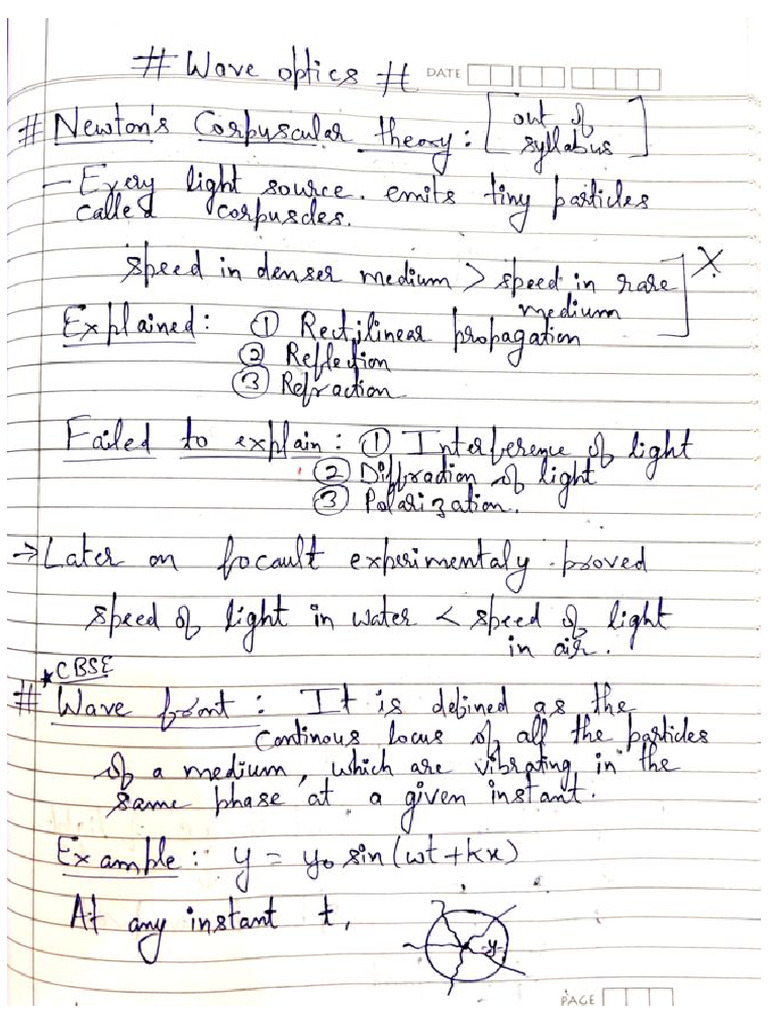 # Wave optics #
DATE
# Newton's Corpuscular theory : [out of
syllabus]
- Every light source. emits tiny particles
called corpuscles.
speed in denser medium > speed in rare ] X
medium
Explained : ① Rectilinear propagation
② Reflection
③ Refraction
Failed to explain : ① Interference of light
② Diffraction of light
③ Polarization.
→ Later on focault experimentaly proved
speed of light in water < speed of light
in air.
* CBSE
# Wave front : It is defined as the
continous locus of all the particles
of a medium, which are vibrating in the
same phase at a given instant.
Example : y = y₀ sin (wt + kx)
At any instant t,
y
PAGE